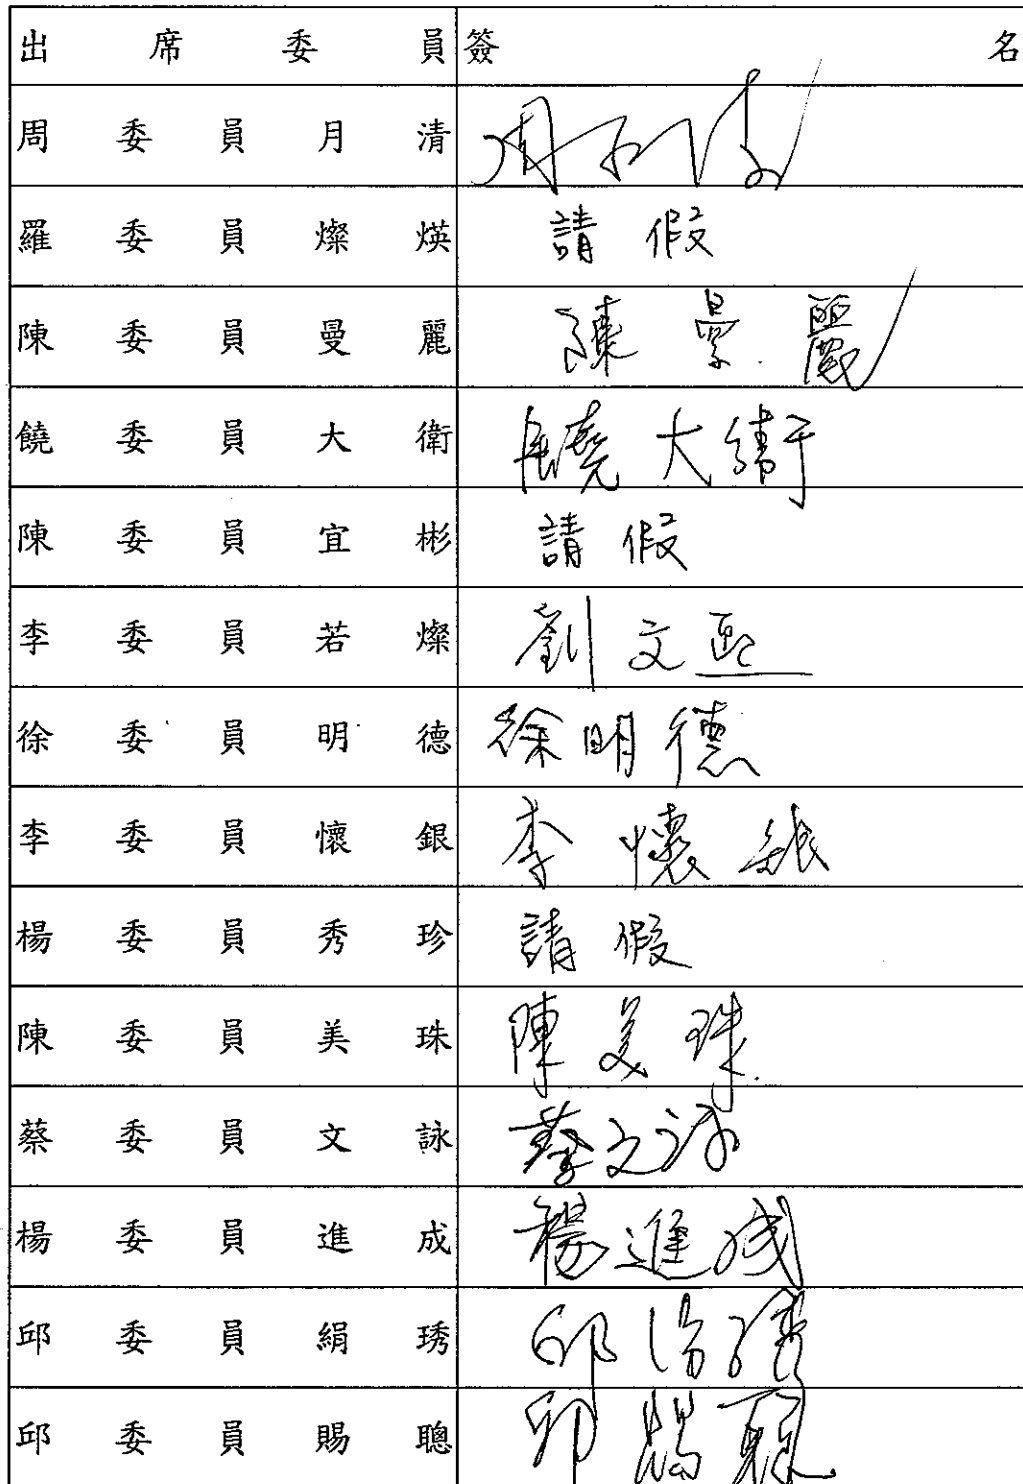 出席委員 簽名
周委員月清 周月清
羅委員燦煐 請假
陳委員曼麗 陳曼麗
饒委員大衛 饒大衛
陳委員宜彬 請假
李委員若燦 劉文熙
徐委員明德 徐明德
李委員懷銀 李懷銀
楊委員秀珍 請假
陳委員美珠 陳美珠
蔡委員文詠 蔡文詠
楊委員進成 楊進成
邱委員絹琇 邱
邱委員賜聰 邱賜聰